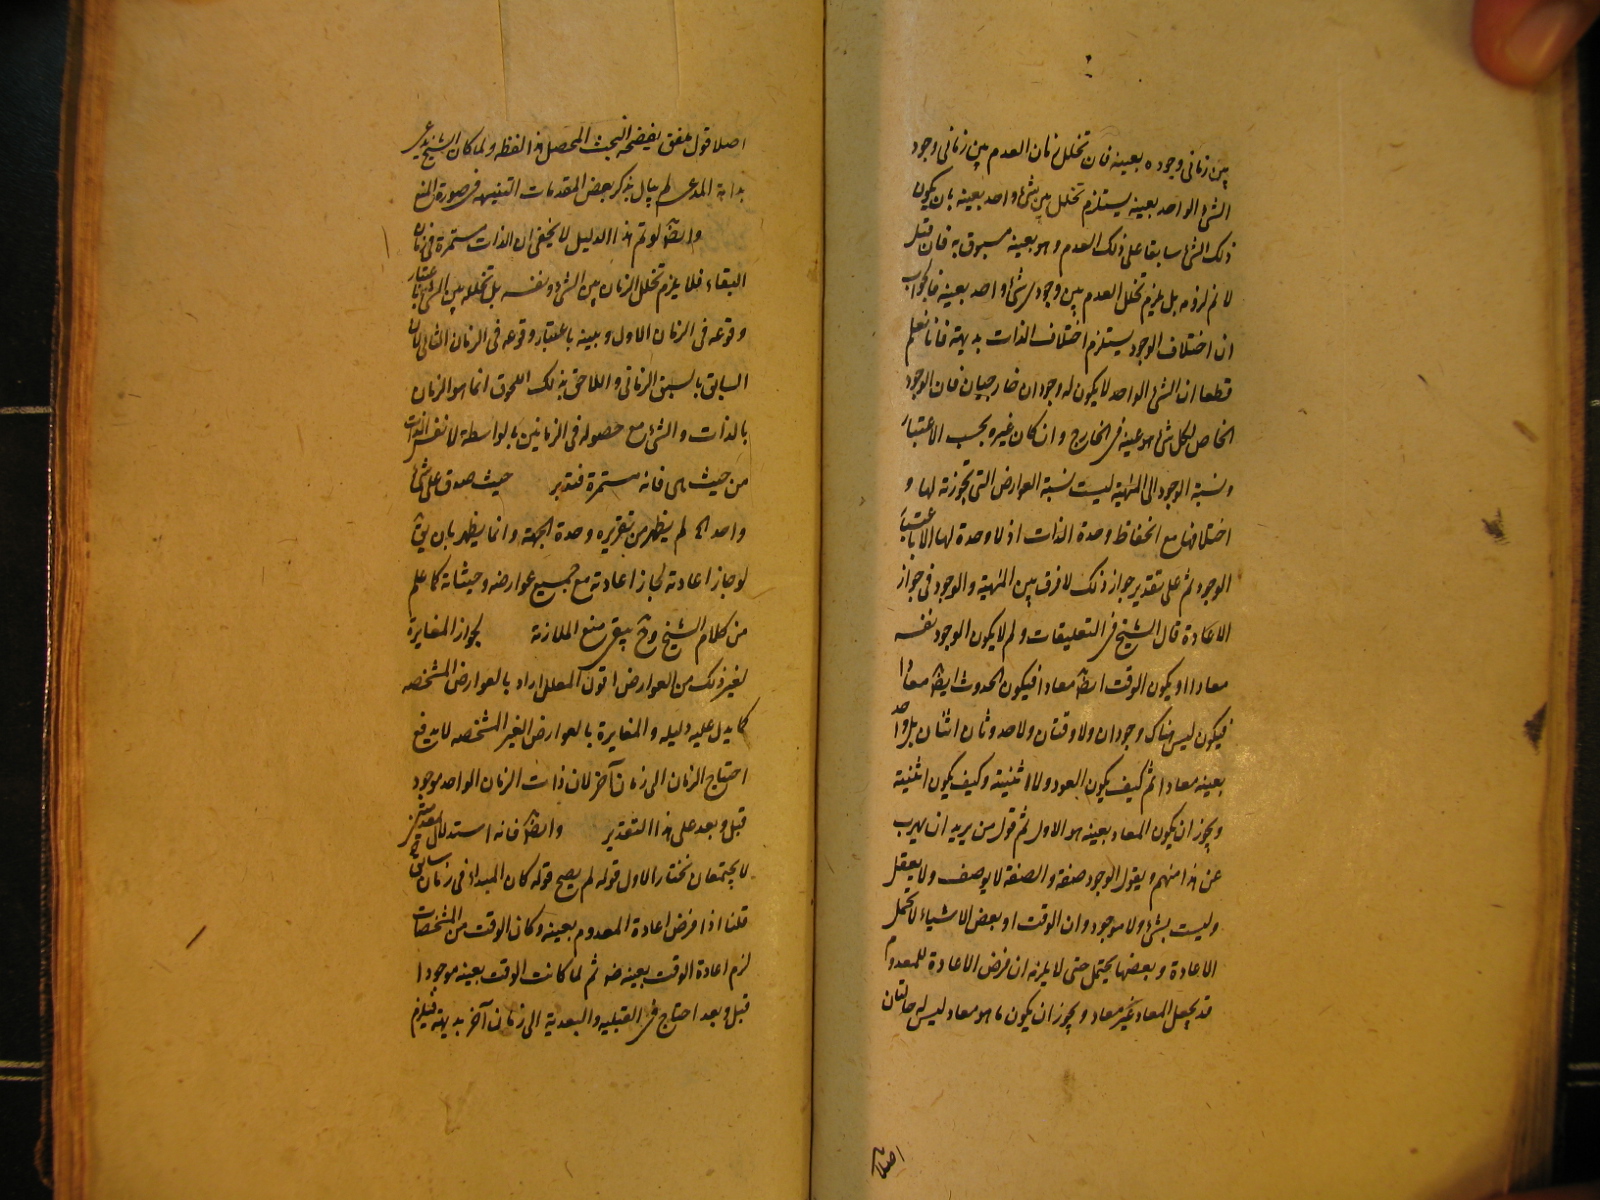 بين زمانى وجوده بعينه فان تخلل زمان العدم بين زمانى وجود
الشئ الواحد بعينه يستلزم تخلل بين شئ واحد بعينه بان يكون
ذلك الشئ سابقا على ذلك العدم وهو بعينه مسبوق به فان قيل
لا نم لزومه بل يلزم تخلل العدم بين وجودى شئ واحد بعينه فالجواب
ان اختلاف الوجود يستلزم اختلاف الذات بديهة فانا نعلم
قطعا ان الشئ الواحد لا يكون له وجودان خارجيان فان الوجود
الخاص لكل شئ هو عينه فى الخارج و ان كان غيره بحسب الاعتبار
ونسبة الوجود الى المهية ليست نسبة العوارض التى تجوزته لها و
اختلافها مع انحفاظ وحدة الذات اذ لا وحدة لها الا باعتبار
الوجود ثم على تقدير جواز ذلك لا فرق بين المهية والوجود فى جواز
الاعادة قال الشيخ فى التعليقات ولم لا يكون الوجود نفسه
معادا او يكون الوقت ايضا معادا فيكون الحدوث ايضا معادا
فيكون ليس هناك وجودان ولا وقتان ولا حدوثان اثنان بل واحد
بعينه معاد ثم كيف يكون العود ولا اثنينية وكيف يكون اثنينية
ويجوز ان يكون المعاد بعينه هو الاول ثم قول من يريد ان يهرب
عن هذا منهم ويقول الوجود صفة والصفة لا يوصف ولا يعقل
وليست بشئ ولا موجود وان الوقت او بعض الاشياء لا تحتمل
الاعادة وبعضها يحتمل حتى لا يلزمه ان فرض الاعادة للمعدوم
قد يجعل المعاد غير معاد ويجوز ان يكون ما هو معاد ليس له حالتان
اصلا
اصلا قول ملفق يفضحه البحث المحصل هذا لفظه ولما كان الشيخ يدعى
بداهة المدعى لم يبال بذكر بعض المقدمات التنبيهية فى صورة المنع
وايضا لو تم هذا الدليل لا يخفى ان الذات مستمرة فى زمان
البقاء فلا يلزم تخلل الزمان بين الشئ ونفسه بل تخلله بين الشئ باعتبار
وقوعه فى الزمان الاول وبينه باعتبار وقوعه فى الزمان الثانى لان
السابق بالسبق الزمانى و اللاحق بذلك اللحوق انما هو الزمان
بالذات و الشئ مع حصوله فى الزمانين بالواسطة لا نفس الذات
من حيث هى فانه مستمرة فتدبر حيث صدق على شئ
واحد الخ لم يظهر من تقريره وحدة الجهة و انما يظهر بان يق
لو جاز اعادته لجاز اعادته مع جميع عوارضه وحيثياته كما علم
من كلام الشيخ وح يبقى منع الملازمة لجواز المغايرة
لغير ذلك من العوارض اقول المعلل اراد بالعوارض المشخصه
كما يدل عليه دليله و المغايرة بالعوارض الغير المشخصه لا يدفع
احتياج الزمان الى زمان آخر لان ذات الزمان الواحد موجود
قبل وبعد على هذا التقدير وايضا فانه استدلال
لا يجتمعان نختار الاول قوله لم يصح قوله كان المبداء فى زمان سابق
قلنا اذا فرض اعادة المعدوم بعينه وكان الوقت من المشخصات
لزم اعادة الوقت بعينه ثم لما كانت الوقت بعينه موجودا
قبل وبعد احتاج فى القبليه و البعدية الى زمان آخر بديهة فيلزم